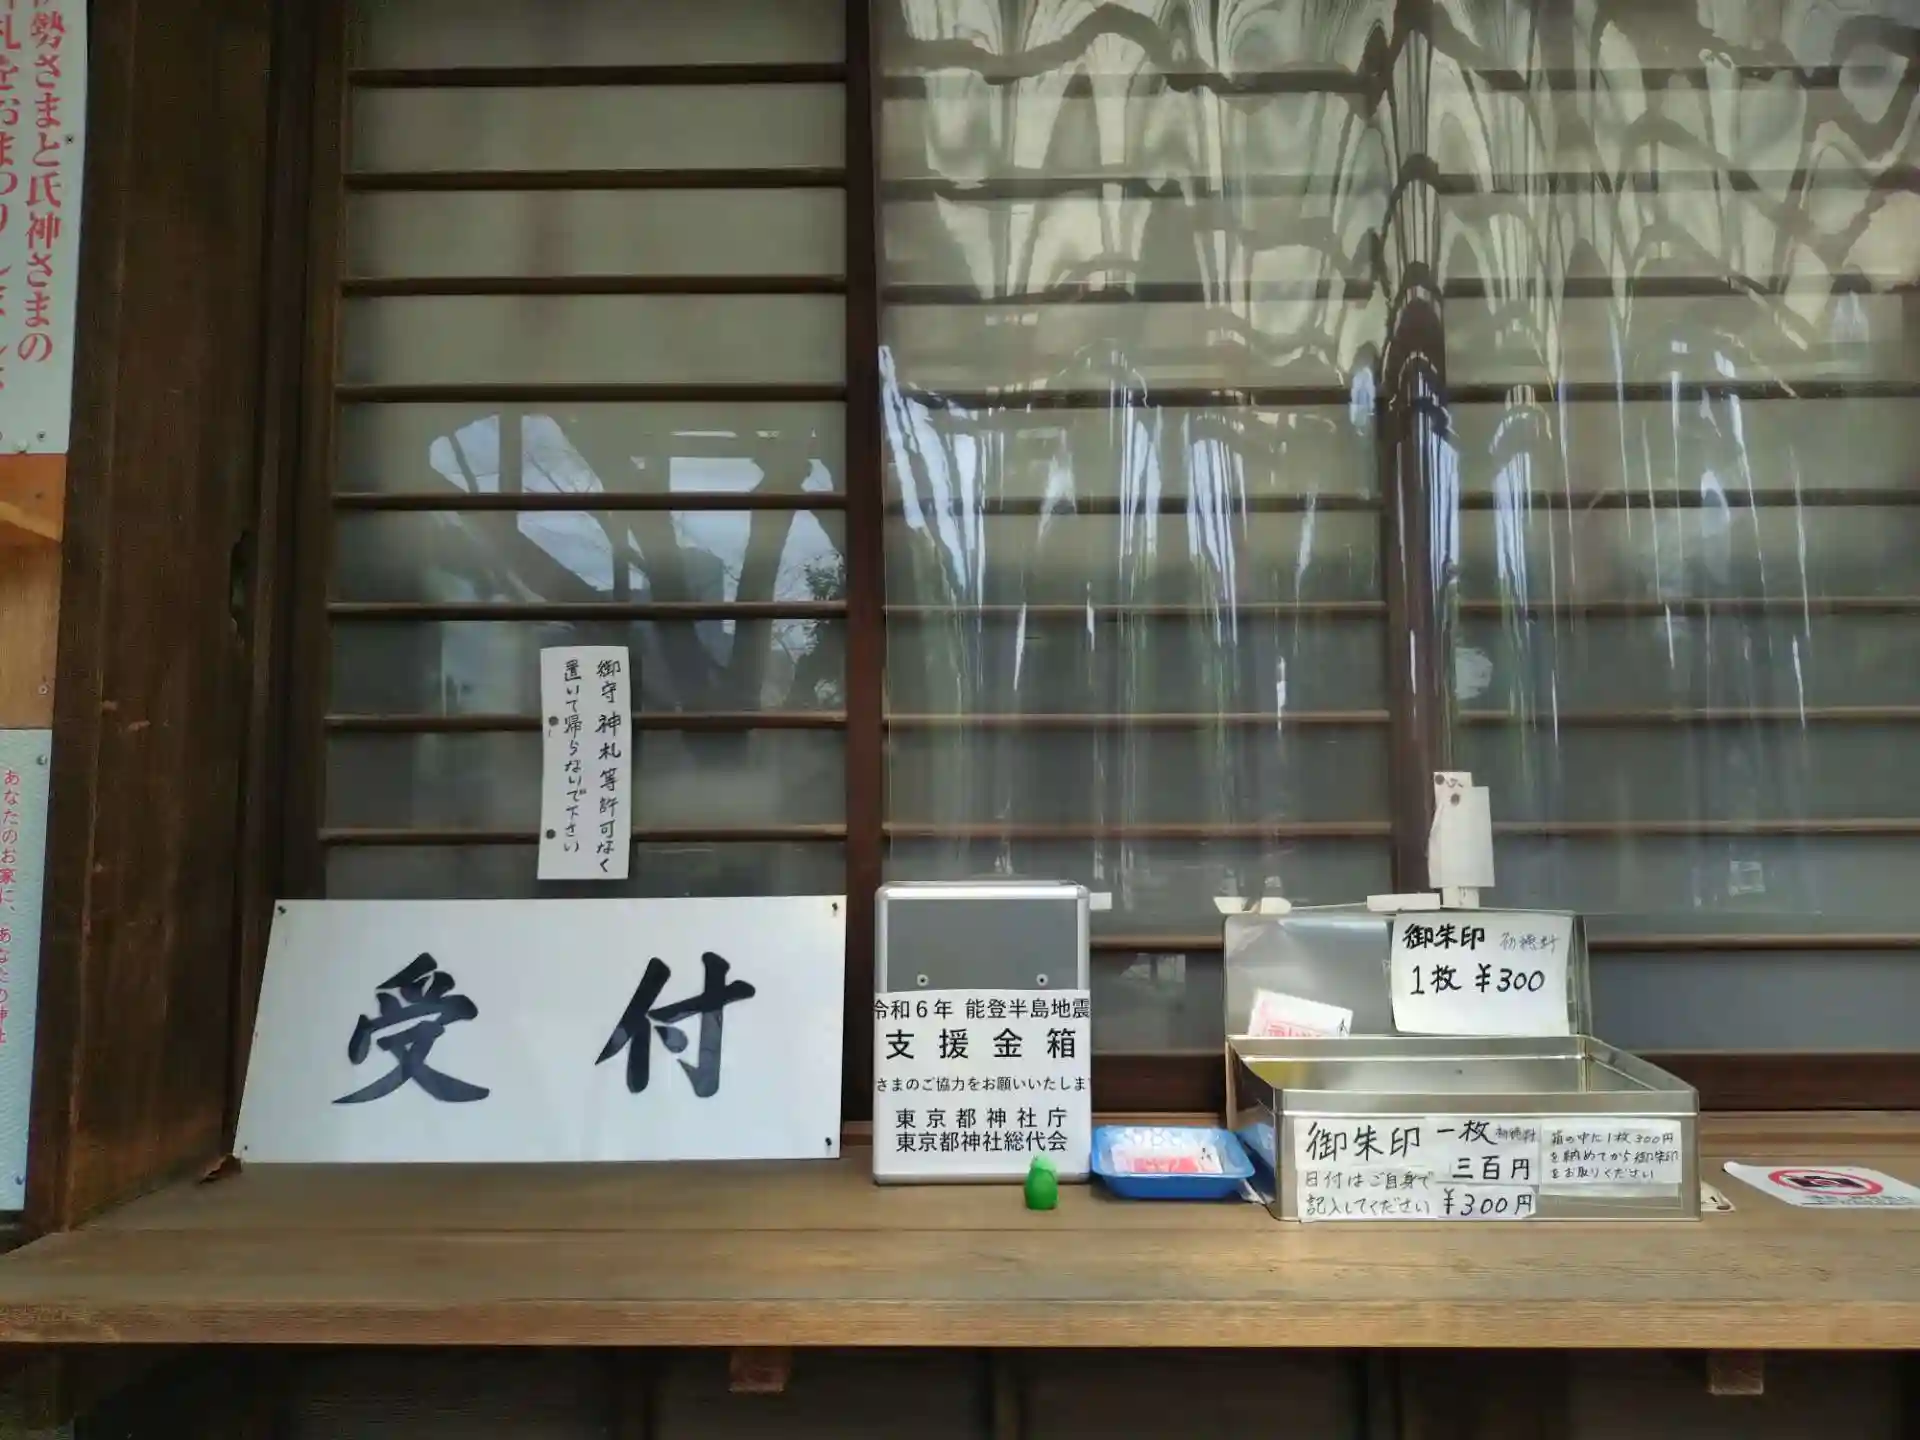 勢さまと氏神さまの
札をおまつりしましょう
あなたのお家に、あなたの神社
御守神札等許可なく
置いて帰らないで下さい
受付
令和6年 能登半島地震
支援金箱
さまのご協力をお願いいたしま
東京都神社庁
東京都神社総代会
御朱印 初穂料
1枚 ¥300
御朱印 一枚 初穂料
三百円
日付はご自身で
記入してください
¥300円
箱の中に1枚300円
を納めてから御朱印
をお取りください